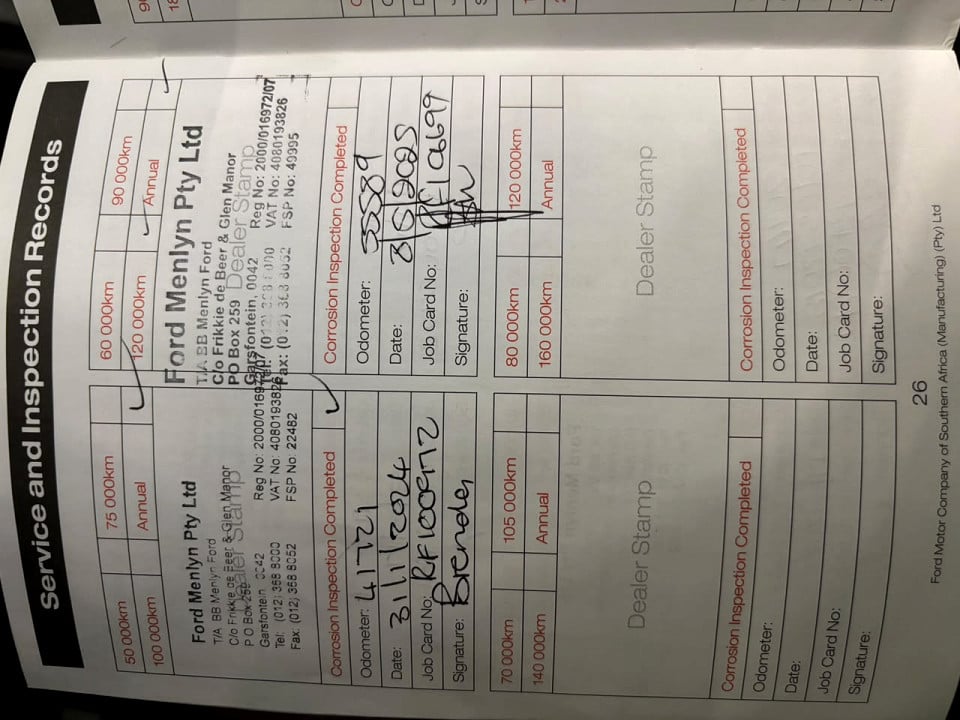 Service and Inspection Records
50 000km
75 000km
100 000km
Annual
Ford Menlyn Pty Ltd
T/A BB Menlyn Ford
C/o Frikkie de Beer & Glen Manor
P O Box 259
Dealer Stamp
Garsfontein 0042
Reg No: 2000/016972/07
Tel: (012) 368 8000
VAT No: 4080193826
Fax: (012) 368 8052
FSP No: 22482
Corrosion Inspection Completed
Odometer: 41721
Date: 31/1/2024
Job Card No:
Signature: Brenden
60 000km
90 000km
120 000km
Annual
Ford Menlyn Pty Ltd
T/A BB Menlyn Ford
C/o Frikkie de Beer & Glen Manor
PO Box 259
Dealer Stamp
Garsfontein, 0042
Reg No: 2000/016972/07
Tel:
VAT No: 4080193826
Fax: (012) 368 8052
FSP No: 49995
Corrosion Inspection Completed
Odometer:
Date:
Job Card No:
Signature:
70 000km
105 000km
140 000km
Annual
Dealer Stamp
Corrosion Inspection Completed
Odometer:
Date:
Job Card No:
Signature:
80 000km
120 000km
160 000km
Annual
Dealer Stamp
Corrosion Inspection Completed
Odometer:
Date:
Job Card No:
Signature:
26
Ford Motor Company of Southern Africa (Manufacturing) (Pty) Ltd